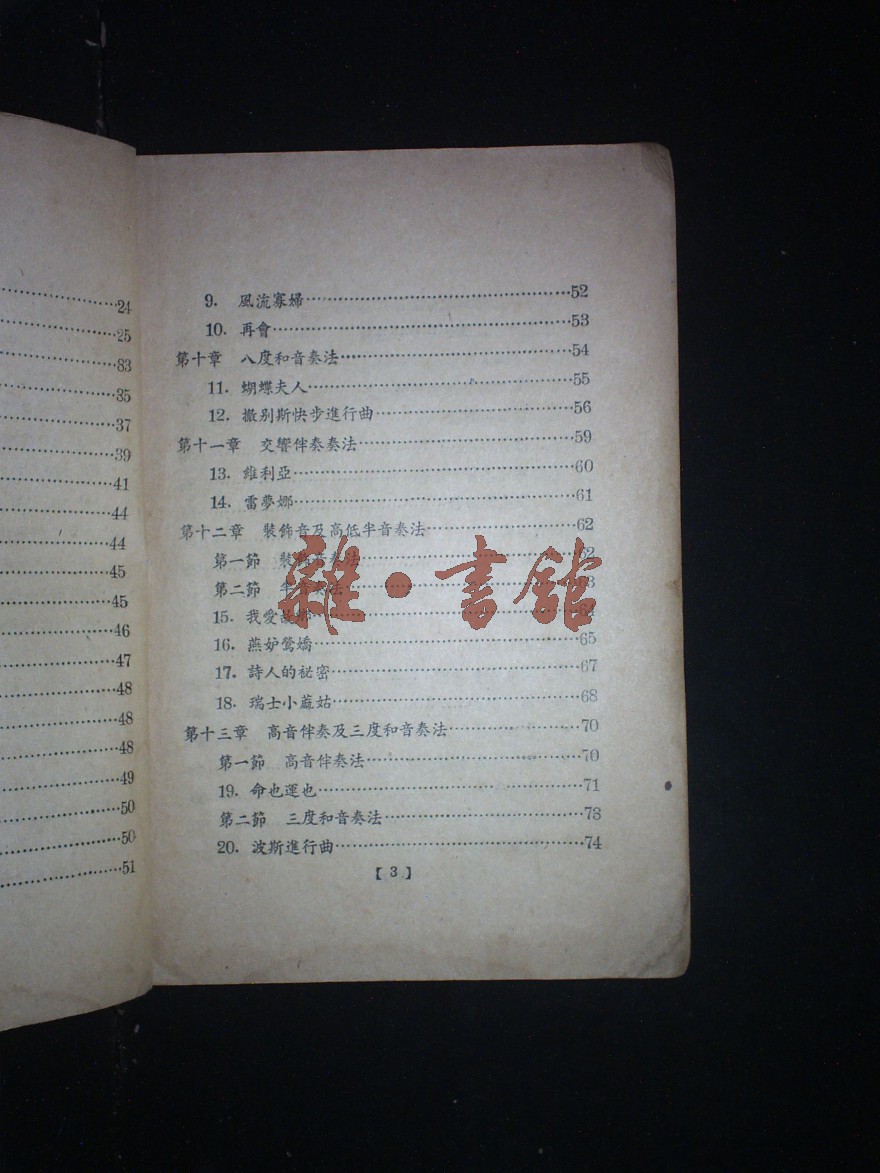 24
25
83
35
37
39
41
44
44
45
45
46
47
48
48
48
49
50
50
51
9. 風流寡婦……52
10. 再會……53
第十章 八度和音奏法……54
11. 蝴蝶夫人……55
12. 撒别斯快步進行曲……56
第十一章 交響伴奏奏法……59
13. 維利亞……60
14. 雷夢娜……61
第十二章 裝飾音及高低半音奏法……62
第一節 裝飾音奏法……62
第二節 半音奏法……63
15. 我愛……64
16. 燕妒鶯嬌……65
17. 詩人的祕密……67
18. 瑞士小蔴姑……68
第十三章 高音伴奏及三度和音奏法……70
第一節 高音伴奏法……70
19. 命也運也……71
第二節 三度和音奏法……73
20. 波斯進行曲……74
【3】
雜·書館